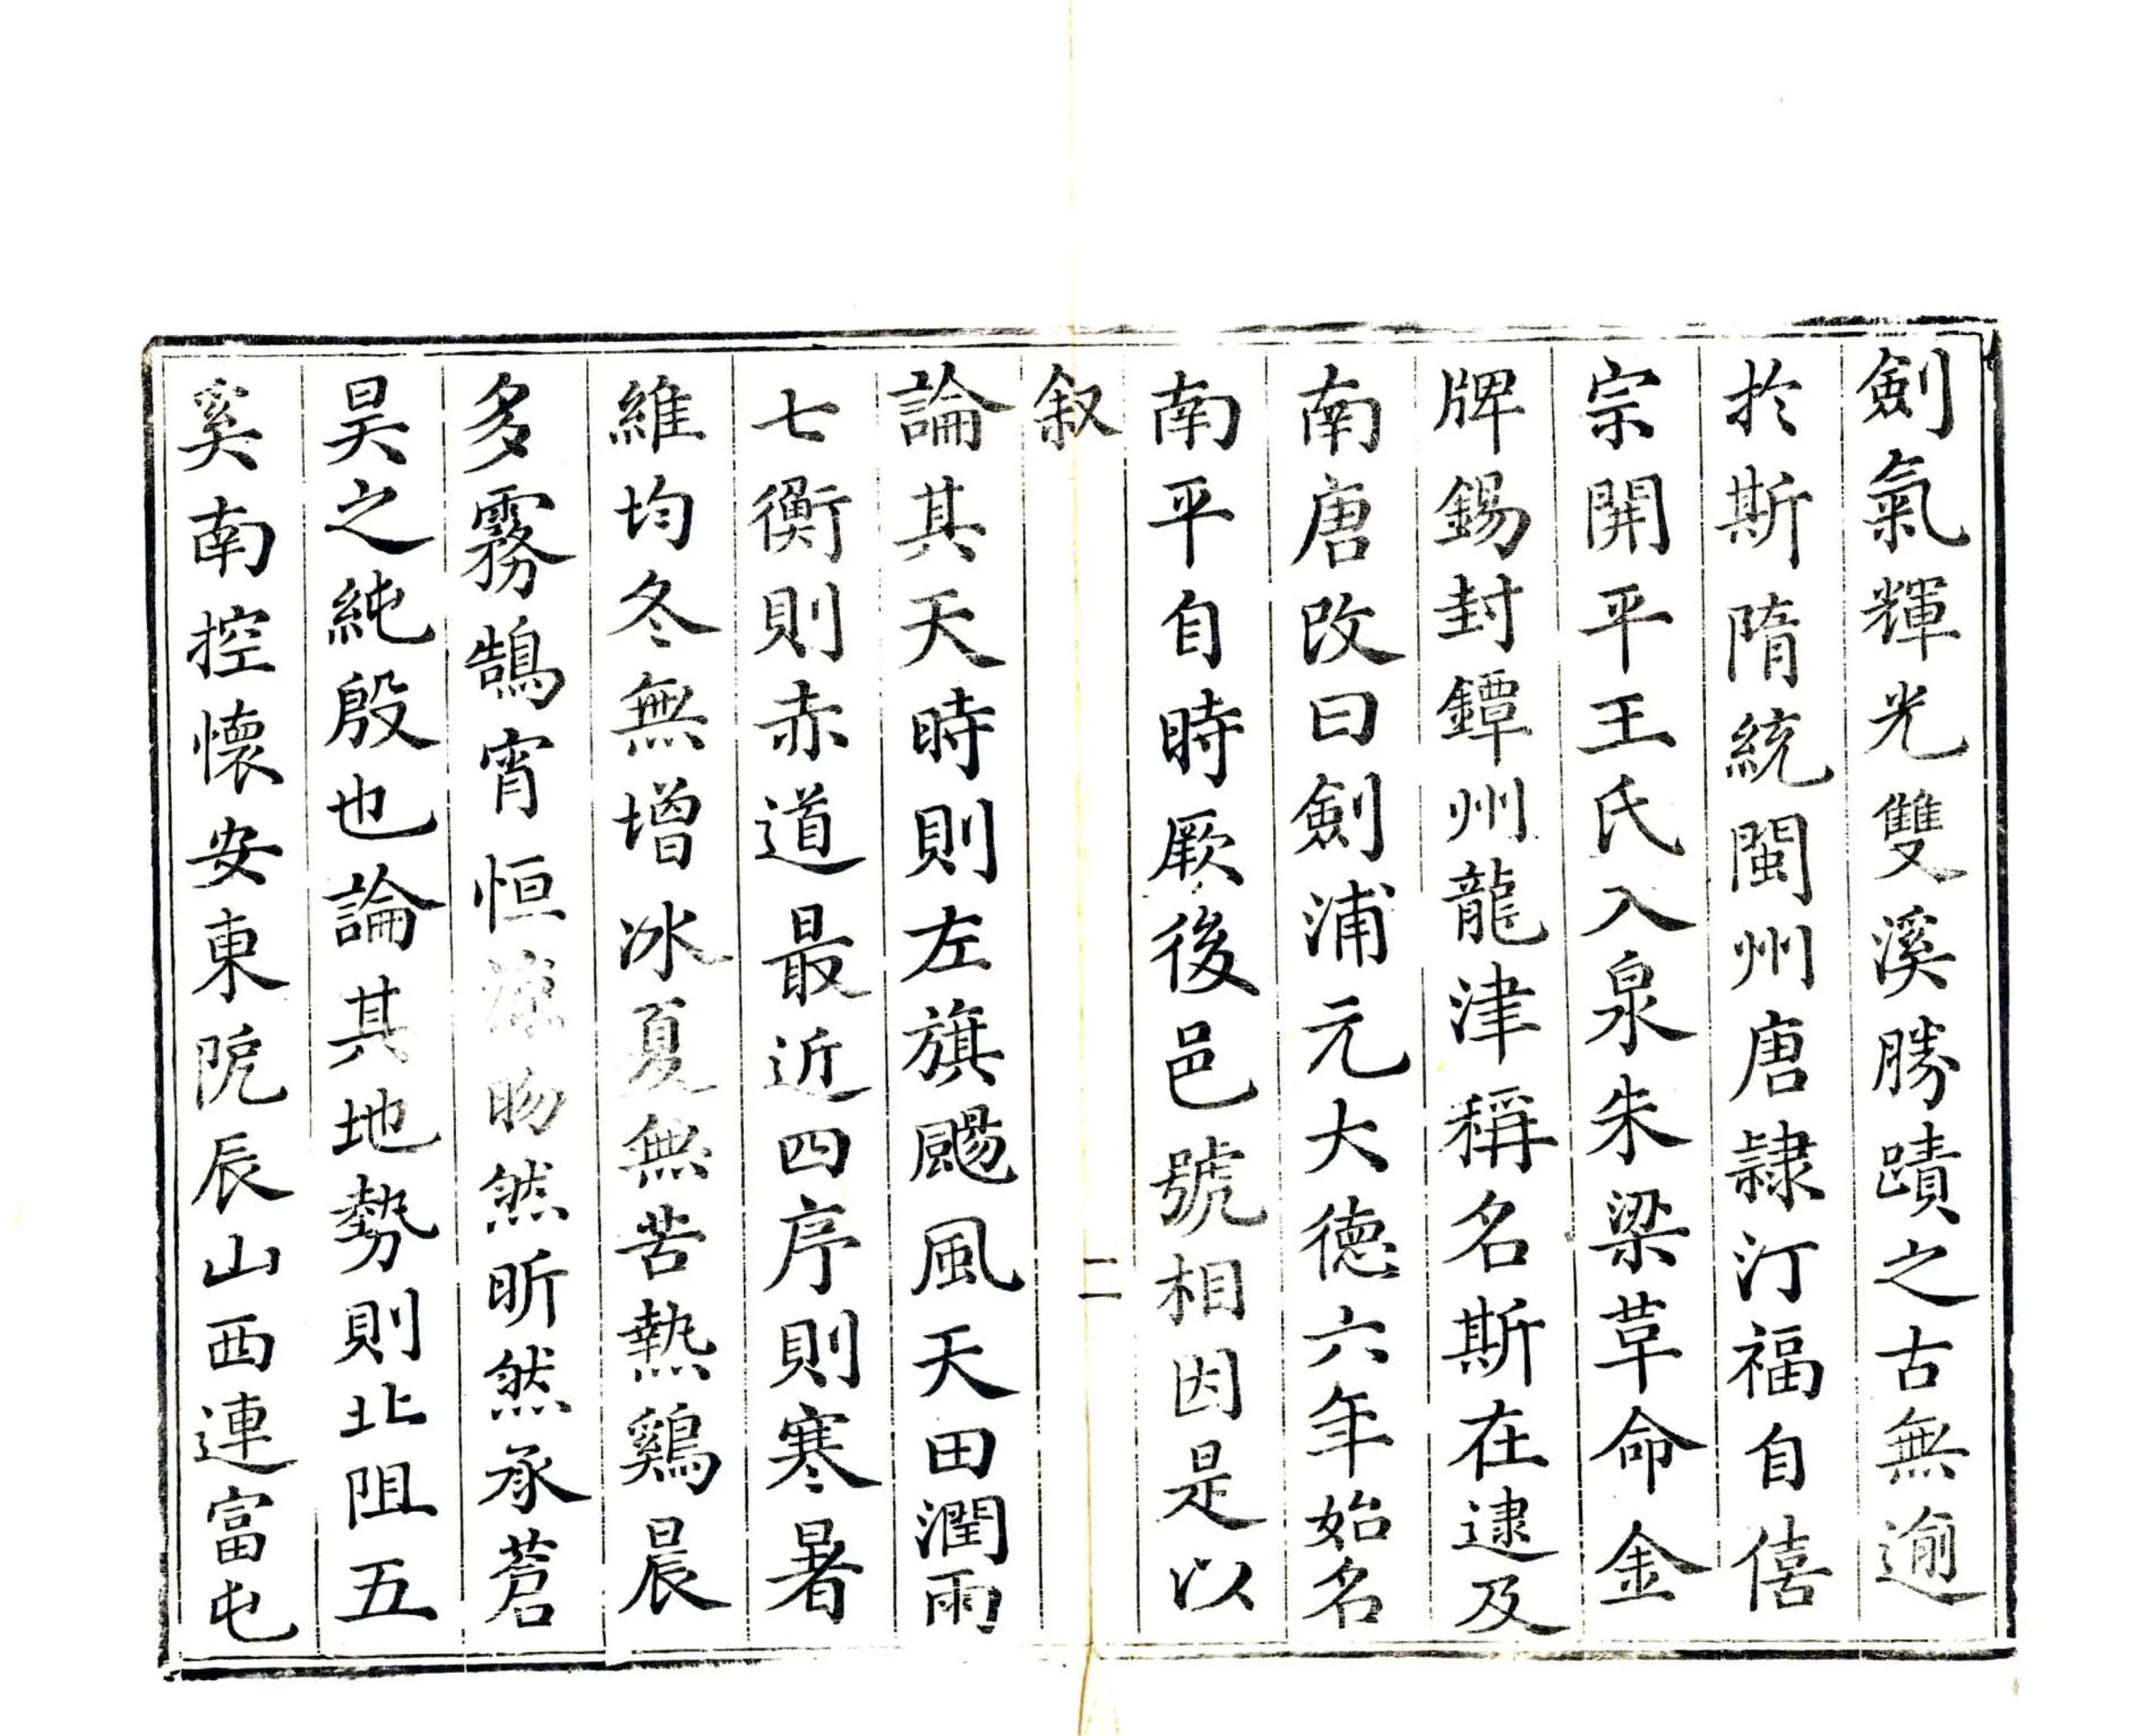 劍氣輝光雙溪勝蹟之古無逾
於斯隋統閩州唐隷汀福自僖
宗開平王氏入泉朱梁革命金
牌錫封鐔州龍津稱名斯在逮及
南唐改曰劍浦元大德六年始名
南平自時厥後邑號相因是以
叙
二
論其天時則左旗颺風天田潤雨
七衡則赤道最近四序則寒暑
維均冬無增冰夏無苦熱鷄晨
多霧鵠宵恒涼昒然昕然承蒼
昊之純殷也論其地勢則北阻五
奚南控懷安東阨辰山西連富屯